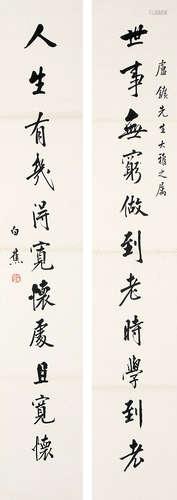 盧 先生大雅之屬
世事無窮做到老時學到老
人生有幾得寬懷處且寬懷
白蕉